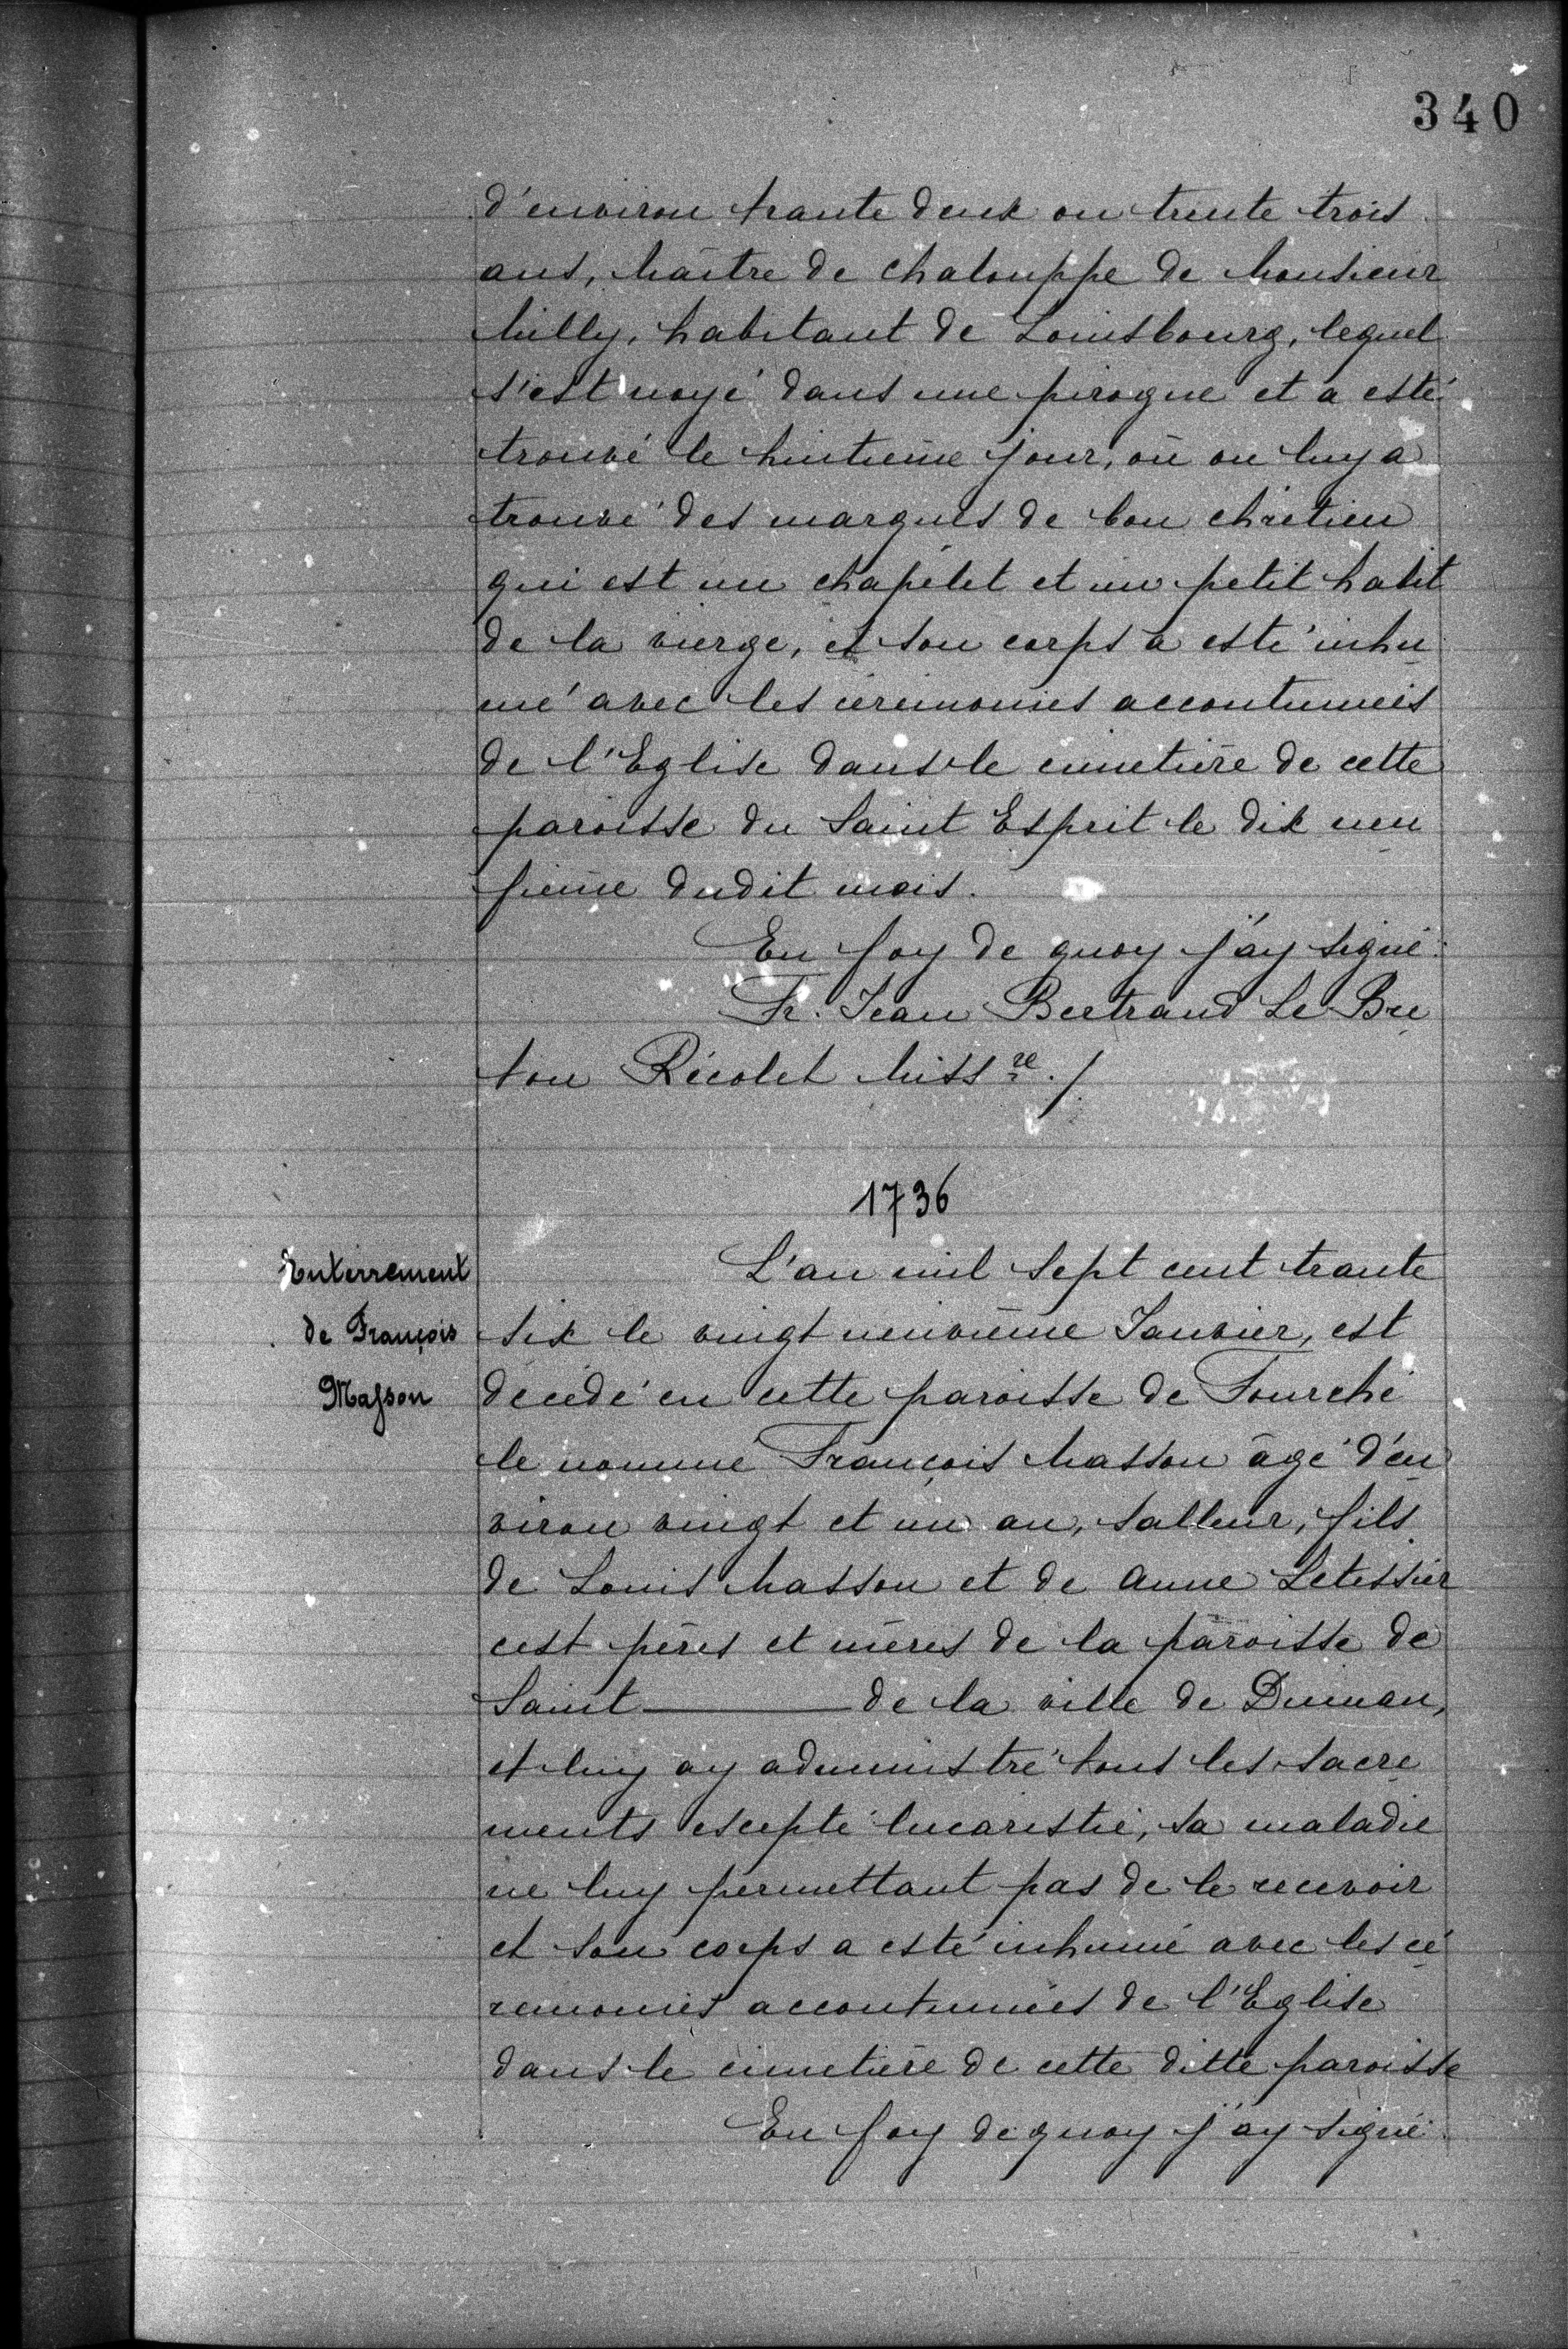 340
d'environ trante deux ou trente trois
ans, Maître de chalouppe de Monsieur
Milly, habitant de Louisbourg, lequel
s'est noyé dans une pirogue et a esté
trouvé le huitième jour, où on luy a
trouvé des marques de bon chrétien
qui est un chapélet et un petit habit
de la vierge, et son corps a esté inhu
mé avec les cérémonies accoutumées
de l'Eglise dans le cimetière de cette
paroisse du Saint Esprit le dix neu
fième dudit mois.
En foy de quoy j'ay signé.
Fr. Jean Bertrand Le Bre
ton Récolet Missre./
1736
Enterrement
de François
Masson
L'an mil sept cent trante
six le vingt neuvième Janvier, est
décédé en cette paroisse de Fourché
le nommé François Masson âgé d'en
viron vingt et un an, Salleur, fils
de Louis Masson et de Anne Letessier
cest pères et mères de la paroisse de
Saint ——— de la ville de Dinnan,
et luy ay administré tous les sacre
ments escepté lucaristie, sa maladie
ne luy permettant pas de le recevoir
et son corps a esté inhumé avec les cé
remonies accoutumées de l'Eglise
dans le cimetière de cette ditte paroisse
En foy de quoy j'ay signé.